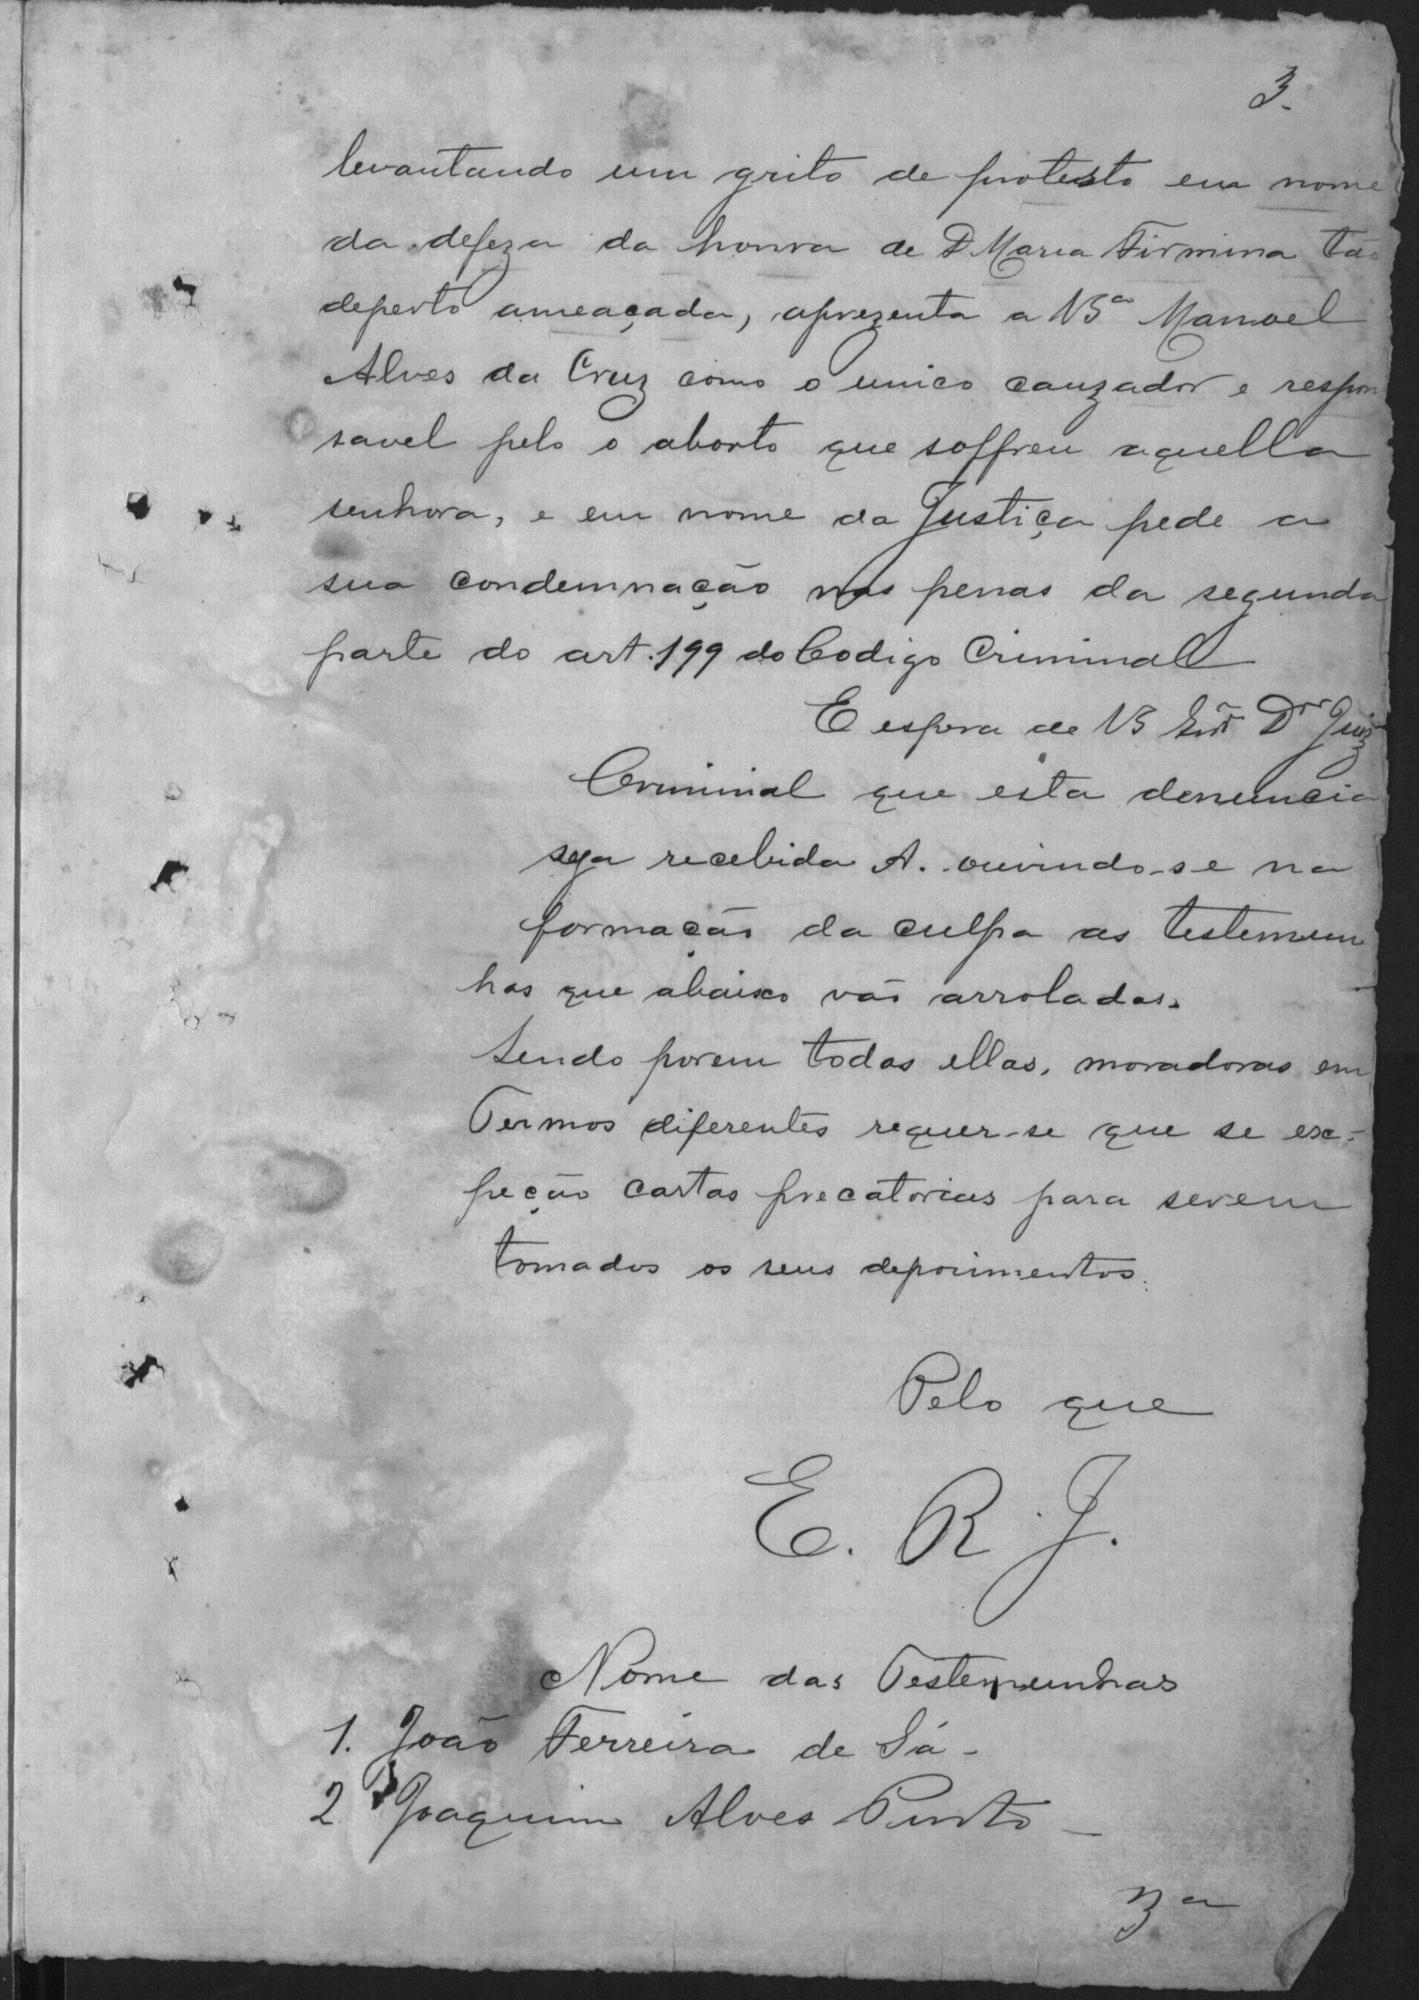 3.
levantando um grito de protesto em nome
da defeza da honra de D Maria Firmina tão
deperto ameaçada, aprezenta a VSª Manoel
Alves da Cruz como o unico cauzador e respon
savel pelo o aborto que soffreu aquella
senhora, e em nome da Justiça pede a
sua condemnação nas penas da segunda
parte do art. 199 do Codigo Criminal
E espera de VS Snr Dr Juiz
Criminal que esta denuncia
seja recebida A. ouvindo-se na
formacão da culpa as testemun
has que abaixo vão arroladas.
Sendo porem todas ellas, moradoras em
Termos diferentes requer-se que se ex-
peção cartas precatorias para serem
tomados os seus depoimentos.
Pelo que
E. R. J.
Nome das Testemunhas
1. João Ferreira de Sá -
2 Joaquim Alves Pinto -
3ª